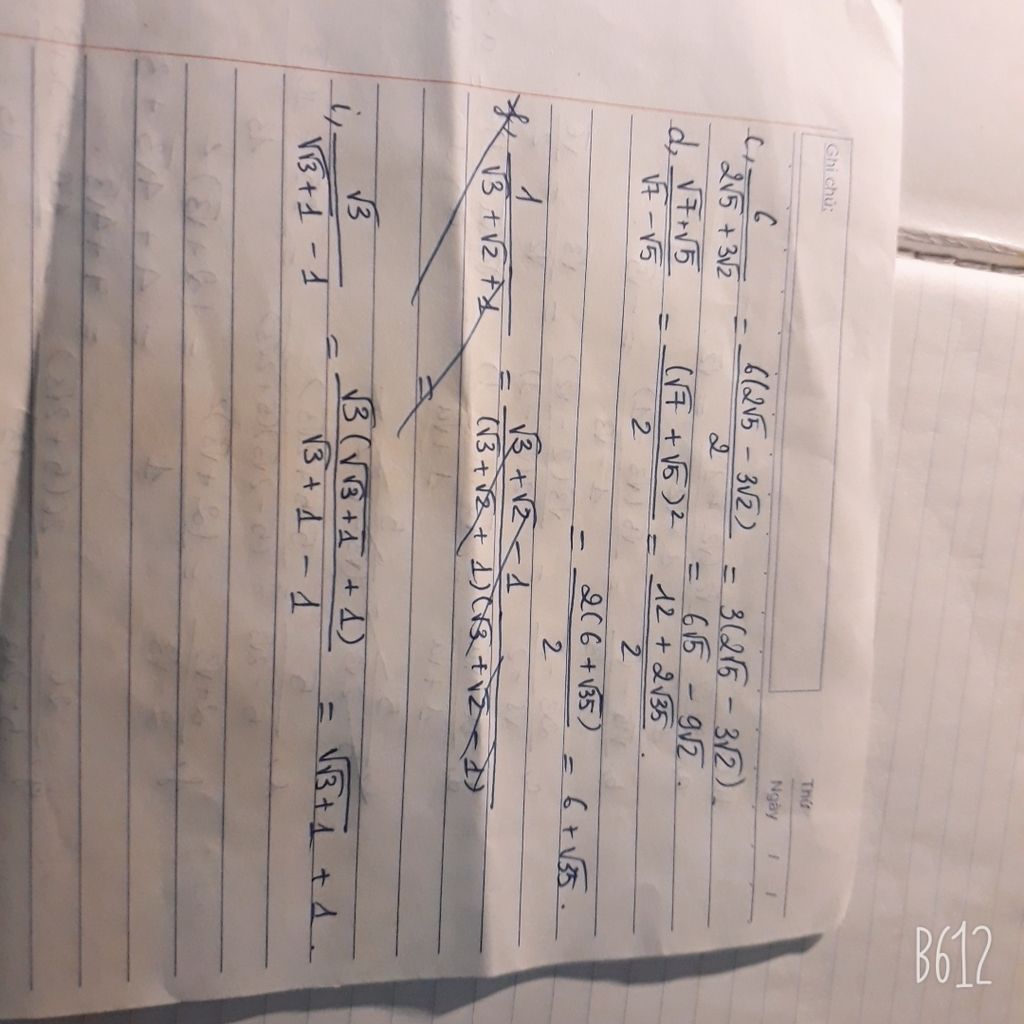 Ghi chú:
Thứ
Ngày / /
c, 6/(2√5 + 3√2) = 6(2√5 - 3√2)/2 = 3(2√5 - 3√2).
= 6√5 - 9√2.
d, (√7+√5)/(√7-√5) = (√7 + √5)²/2 = (12 + 2√35)/2.
= 2(6+√35)/2 = 6+√35.
1/(√3 + √2 + 1) = (√3 + √2 - 1)/((√3+√2 + 1)(√3 + √2 - 1))
=
i, √3/(√(√3+1) - 1) = √3(√(√3+1) + 1)/(√3 + 1 - 1) = √(√3+1) + 1.
B612